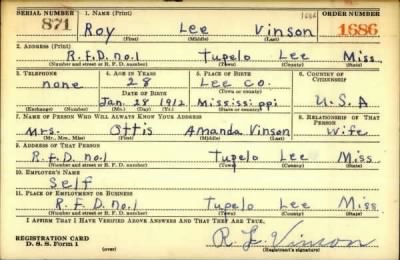 SERIAL NUMBER 1. NAME (Print) ORDER NUMBER
871 Roy Lee Vinson 1686
(First) (Middle) (Last)
2. ADDRESS (Print)
R.F.D. no.1 Tupelo Lee Miss.
(Number and street or R. F. D. number) (Town) (County) (State)
3. TELEPHONE 4. AGE IN YEARS 5. PLACE OF BIRTH 6. COUNTRY OF CITIZENSHIP
none 28 Lee Co.
DATE OF BIRTH (Town or county)
Jan. 28 1912 Mississippi U.S.A
(Exchange) (Number) (Mo.) (Day) (Yr.) (State or country)
7. NAME OF PERSON WHO WILL ALWAYS KNOW YOUR ADDRESS 8. RELATIONSHIP OF THAT PERSON
Mrs. Ottis Amanda Vinson Wife
(Mr., Mrs., Miss) (First) (Middle) (Last)
9. ADDRESS OF THAT PERSON
R.F.D. no.1 Tupelo Lee Miss
(Number and street or R. F. D. number) (Town) (County) (State)
10. EMPLOYER'S NAME
Self
11. PLACE OF EMPLOYMENT OR BUSINESS
R.F.D no.1 Tupelo Lee Miss.
(Number and street or R. F. D. number) (Town) (County) (State)
I AFFIRM THAT I HAVE VERIFIED ABOVE ANSWERS AND THAT THEY ARE TRUE.
REGISTRATION CARD
D. S. S. Form 1 (over) R L Vinson
(Registrant's signature)